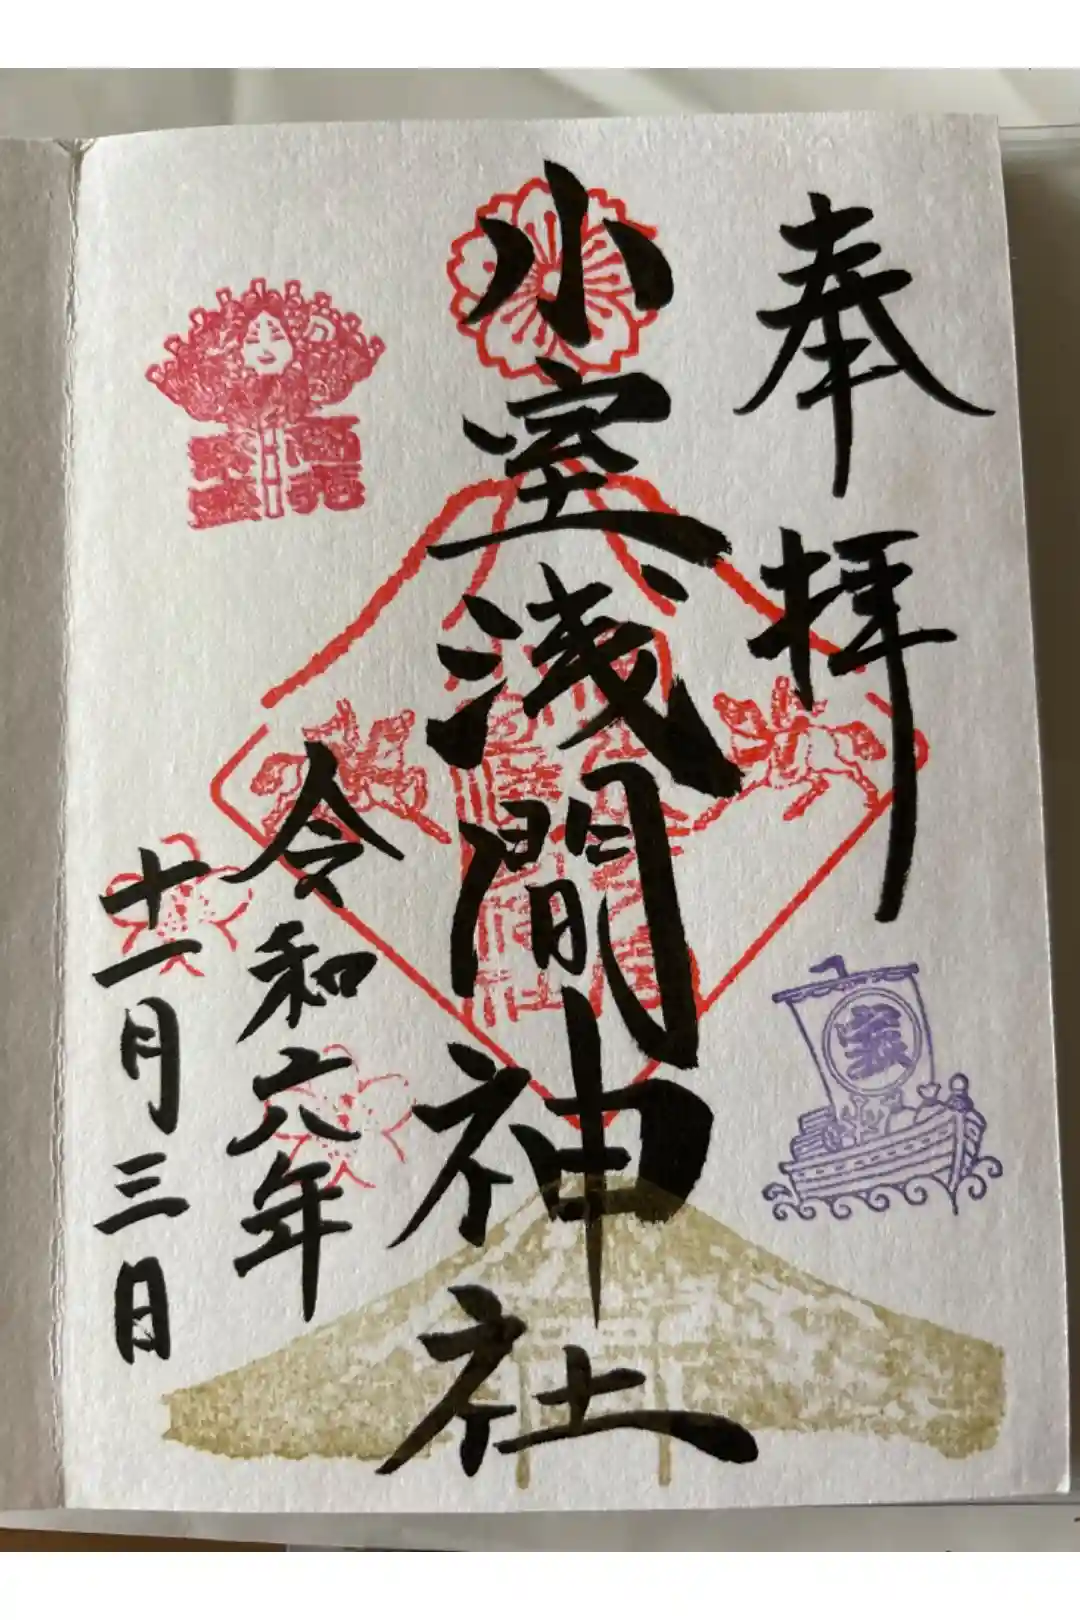 奉拝
小室浅間神社
令和六年
十一月三日
商売
繁盛